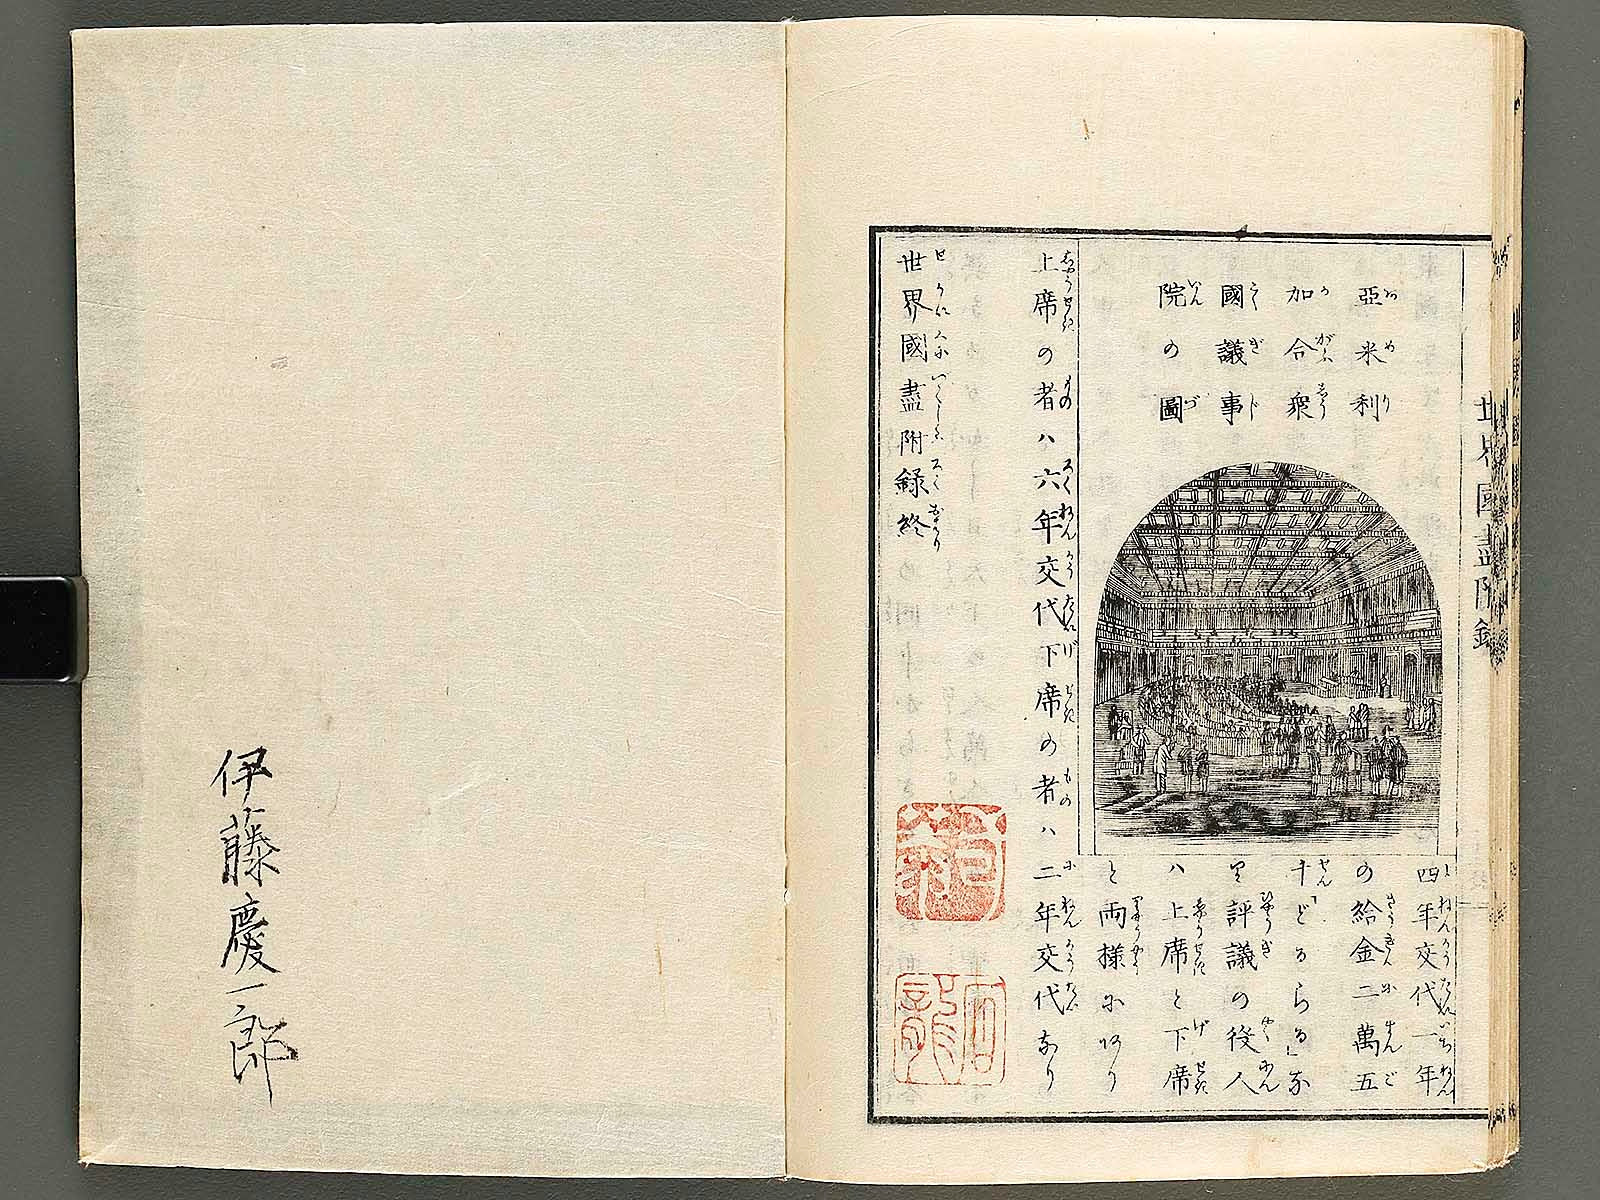 亞米利
加合衆
國議事
院の圖
四年交代一年
の給金二萬五
千「どるらる」な
り評議の役人
ハ上席と下席
と両様にあり
上席の者ハ六年交代下席の者ハ二年交代なり
世界國盡附録終
世界國盡附録
伊藤慶一郎